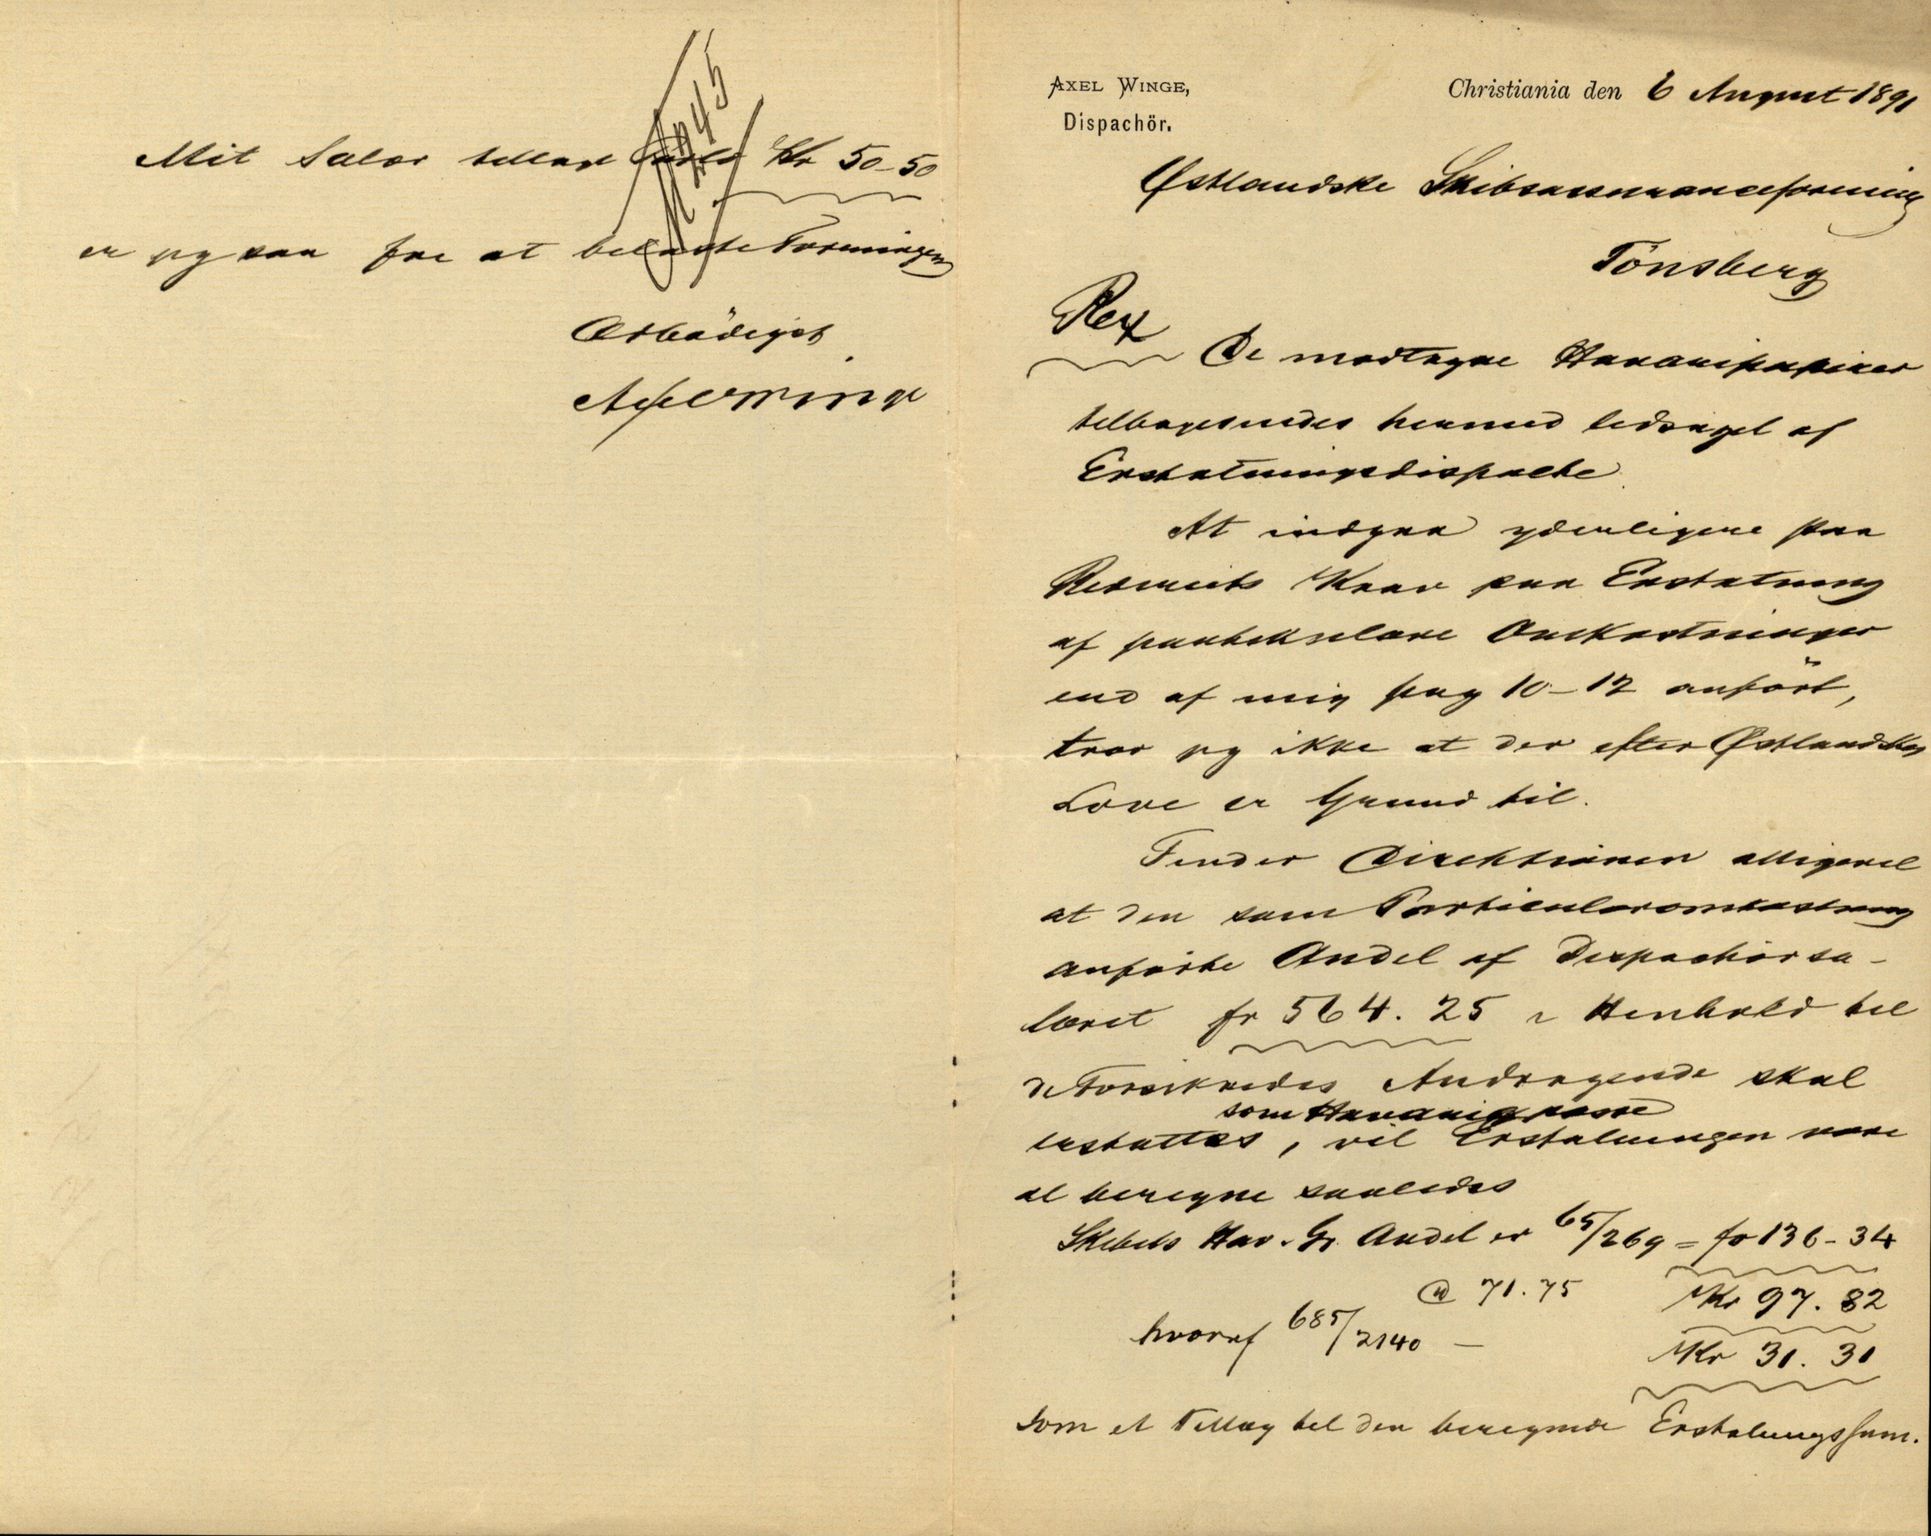 AXEL WINGE,
Dispachör.
Christiania den 6 August 1891
Østlandske Skibsassuranceforening
Tönsberg
Rex
De modtagne Havaripapirer
tilbagesendes hermed ledsaget af
Erstatningsdispache
At indgaa yderligere paa
Rederiets Krav paa Erstatning
af partikulære Omkostninger
end af mig pag 10-12 anfört,
tror jeg ikke at der efter Østlandskes
Love er Grund til.
Finder Direktionen alligevel
at den som Particulæromkostning
anförte Andel af Dispachörsa-
læret fr 564.25 i Henhold til
de Forsikredes Andragende skal
som Havarie grosse
erstattes, vil Erstatningen være
at beregne saaledes
Skibets Hav. Gr. Andel er 65/269 = fr 136-34
@ 71.75 Kr 97.82
hvoraf 685/2140 — Kr 31.31
som et Tillæg til den beregnede Erstatningssum.
Mit Salær tillagt Porto Kr 50-50
er jeg saa fri at belaste Foreningen
Ærbödigst
Axel Winge